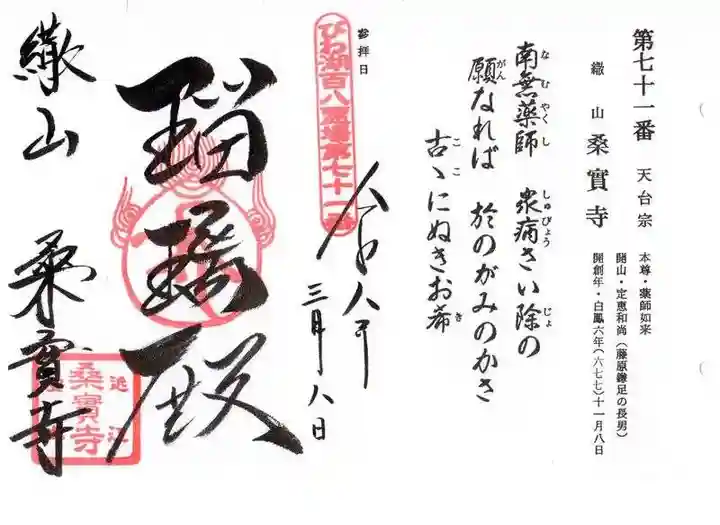 第七十一番 天台宗
繖山 桑實寺
本尊・薬師如来
開山・定恵和尚(藤原鎌足の長男)
開創年・白鳳六年(六七七)十一月八日
南無薬師 衆病さい除の
なむやくし しゅびょう じょ
願なれば 於のがみのかさ
がん
古ヽにぬきお希
ここ き
参拝日
びわ湖百八霊場第七十一番
八年
三月八日
瑠璃殿
繖山 桑實寺
近江
桑實寺